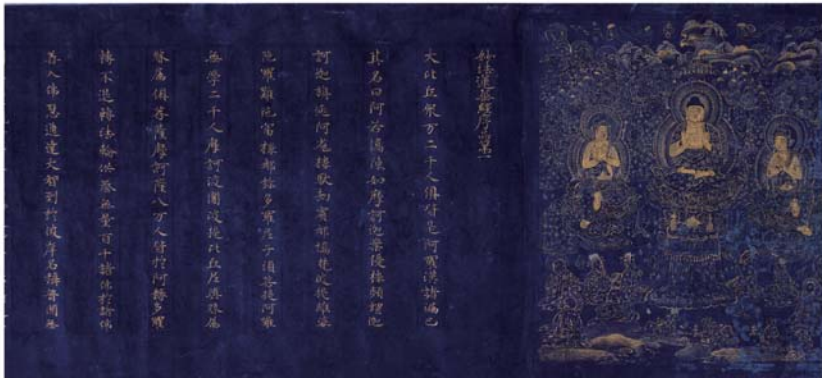 妙法蓮華經序品第一
大比丘衆万二千人俱皆是阿羅漢諸漏已
其名曰阿若憍陳如摩訶迦葉優樓頻螺迦
訶迦旃延阿㝹樓馱劫賓那憍梵波提離婆
陀羅難陀富樓那彌多羅尼子須菩提阿難
無學二千人摩訶波闍波提比丘尼與眷屬
眷屬俱菩薩摩訶薩八万人皆於阿耨多羅
轉不退轉法輪供養無量百千諸佛於諸佛
善入佛慧通達大智到於彼岸名稱普聞無